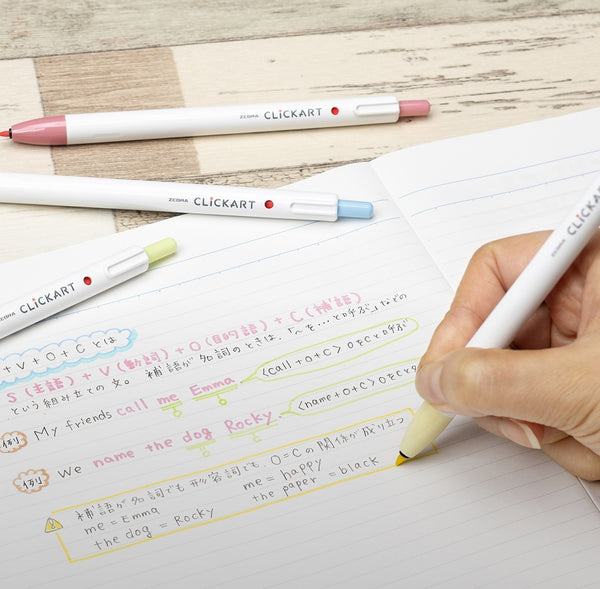 ZEBRA CLiCKART
ZEBRA CLiCKART
ZEBRA CLiCKART
ZEBRA CLiCKART
+V+O+Cとは
S(主語)+V(動詞)+O(目的語)+C(補語)
という組み立ての文。補語が名詞のときは、「〜を…と呼ぶ」などの
例 My friends call me Emma. <call+O+C> OをCと呼ぶ
例 We name the dog Rocky. <name+O+C> OをCと
補語が名詞でも形容詞でも、O=Cの関係が成り立つ
me = Emma me = happy
the dog = Rocky the paper = black